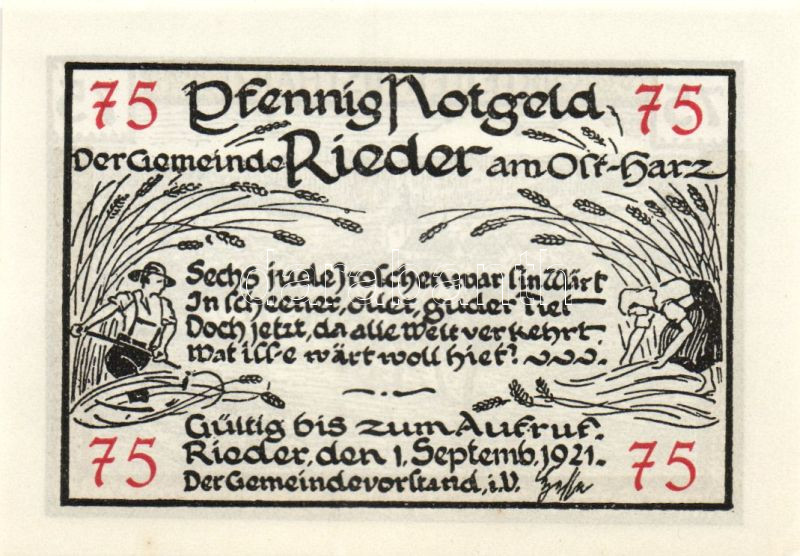 75 Pfennig Notgeld 75
Der Gemeinde Rieder am Ost-Harz
Sechs jude Jroschen war sin Wärt
In scheener, oller, guder Tiet
Doch jetzt, da alle Welt verkehrt,
Wat iss-e wärt woll hiet?
Gültig bis zum Aufruf.
75 Rieder, den 1. Septemb. 1921. 75
Der Gemeindevorstand, i.V.